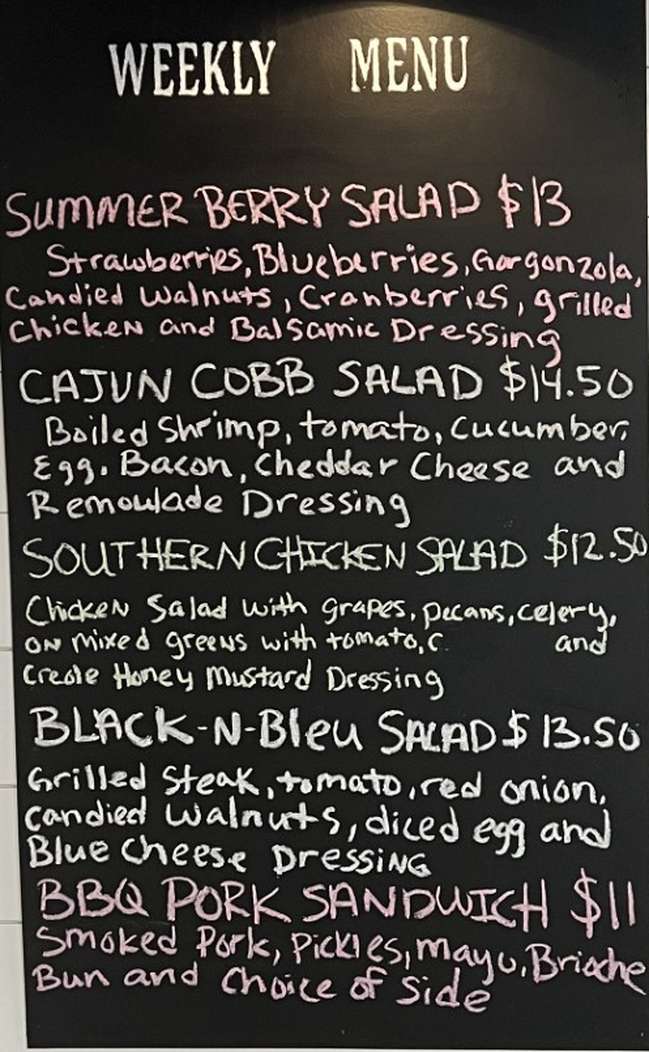 WEEKLY MENU
SUMMER BERRY SALAD $13
Strawberries, Blueberries, Gorgonzola,
Candied Walnuts, Cranberries, grilled
Chicken and Balsamic Dressing
CAJUN COBB SALAD $14.50
Boiled Shrimp, tomato, Cucumber,
Egg. Bacon, Cheddar Cheese and
Remoulade Dressing
SOUTHERN CHICKEN SALAD $12.50
Chicken Salad with grapes, pecans, celery,
on mixed greens with tomato, C and
Creole Honey Mustard Dressing
BLACK-N-Bleu SALAD $13.50
Grilled Steak, tomato, red onion,
Candied Walnuts, diced egg and
Blue Cheese Dressing
BBQ PORK SANDWICH $11
Smoked Pork, Pickles, Mayo, Brioche
Bun and Choice of Side